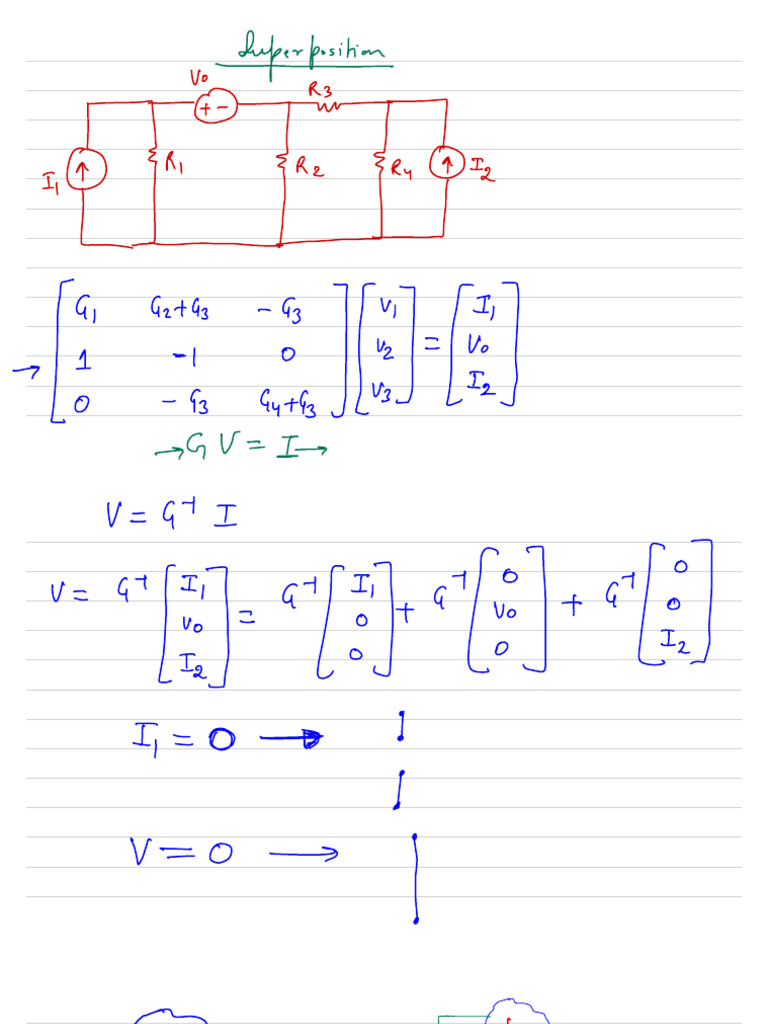 Superposition
V0
+ -
R3
I1
R1
R2
R4
I2
[ G1 G2+G3 -G3 ] [ V1 ] [ I1 ]
→ [ 1 -1 0 ] [ V2 ] = [ V0 ]
[ 0 -G3 G4+G3 ] [ V3 ] [ I2 ]
→ G V = I →
V = G⁻¹ I
V = G⁻¹ [ I1 V0 I2 ] = G⁻¹ [ I1 0 0 ] + G⁻¹ [ 0 V0 0 ] + G⁻¹ [ 0 0 I2 ]
I1 = 0 →
V = 0 →